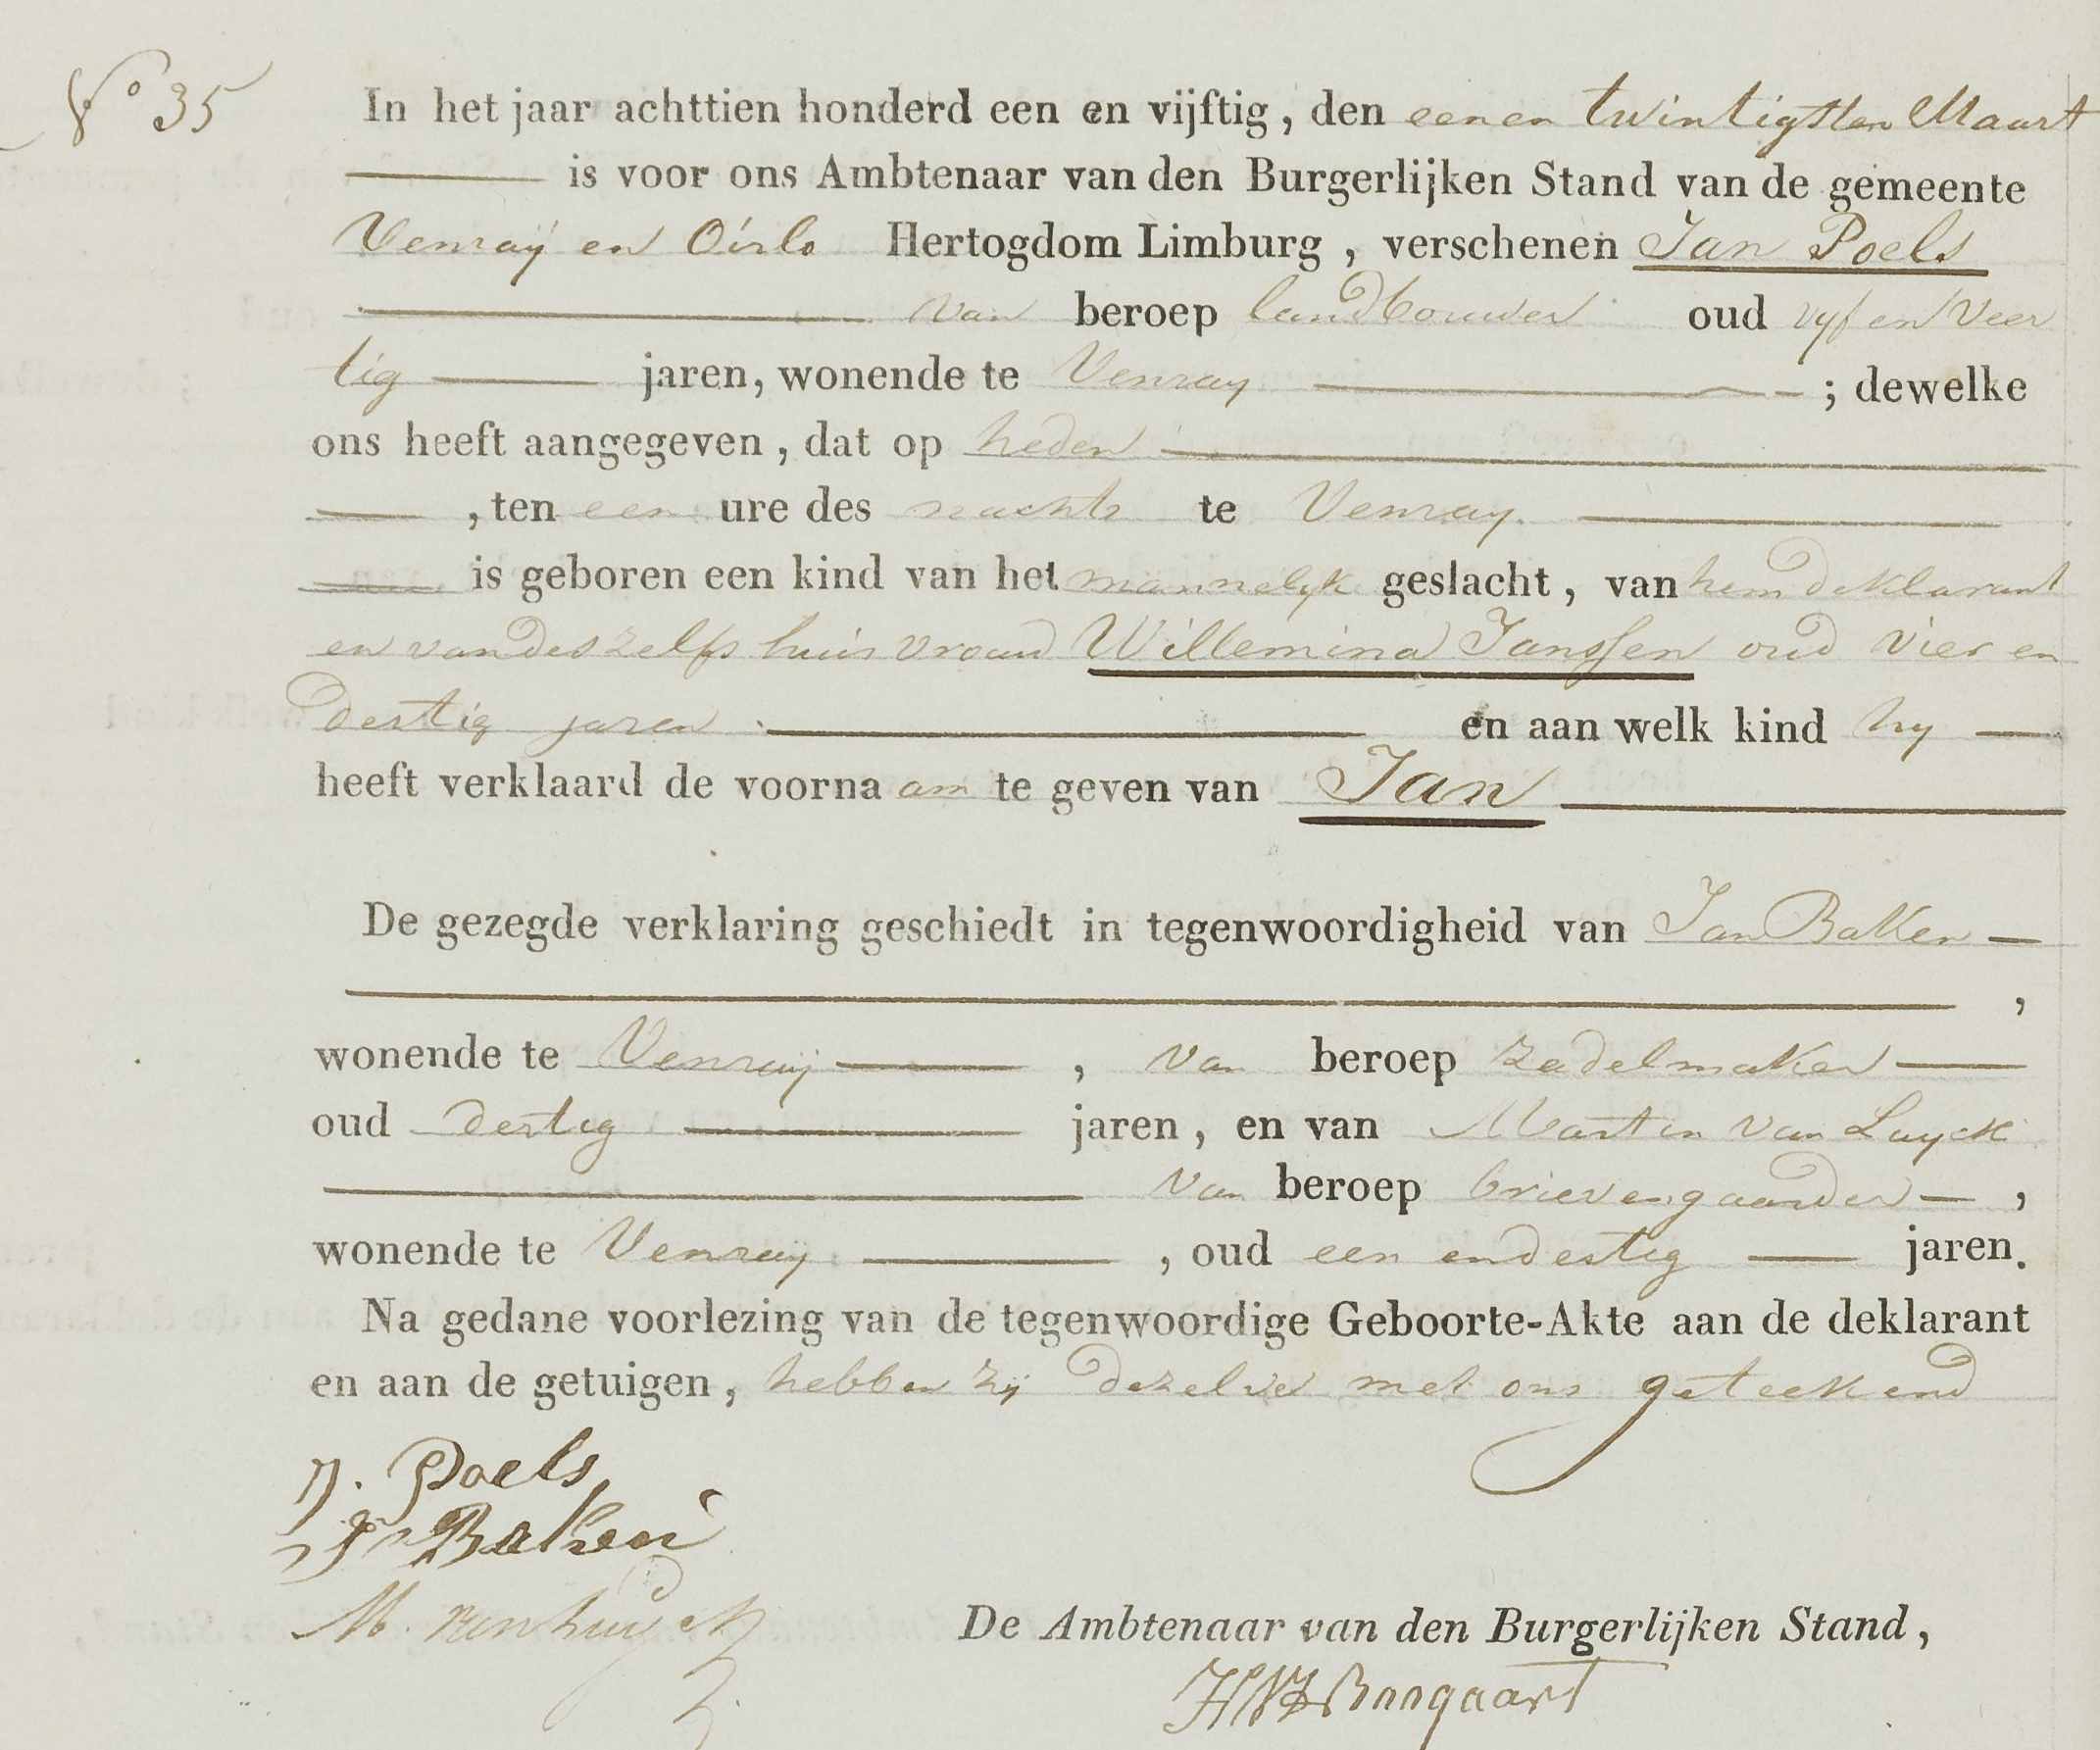 N° 35
In het jaar achttien honderd een en vijftig, den eenen twintigsten Maart
is voor ons Ambtenaar van den Burgerlijken Stand van de gemeente
Venraÿ en Oirlo Hertogdom Limburg, verschenen Jan Poels
van beroep landbouwer oud vyf en Veer
tig jaren, wonende te Venray ; dewelke
ons heeft aangegeven, dat op heden
, ten een ure des nachts te Venray.
is geboren een kind van het mannelyk geslacht, van hem deklarant
en van deszelfs huisvrouw Willemina Janssen oud vier en
dertig jaren en aan welk kind hy
heeft verklaard de voorna am te geven van Jan
De gezegde verklaring geschiedt in tegenwoordigheid van Jan Baken
,
wonende te Venraij , van beroep zadelmaker
oud dertig jaren, en van Martin van Luyck
van beroep brievengaarder ,
wonende te Venray , oud een en dertig jaren.
Na gedane voorlezing van de tegenwoordige Geboorte-Akte aan de deklarant
en aan de getuigen, hebben zij dezelve met ons geteekend
J. Poels
J Baken
M. van Luyck
De Ambtenaar van den Burgerlijken Stand,